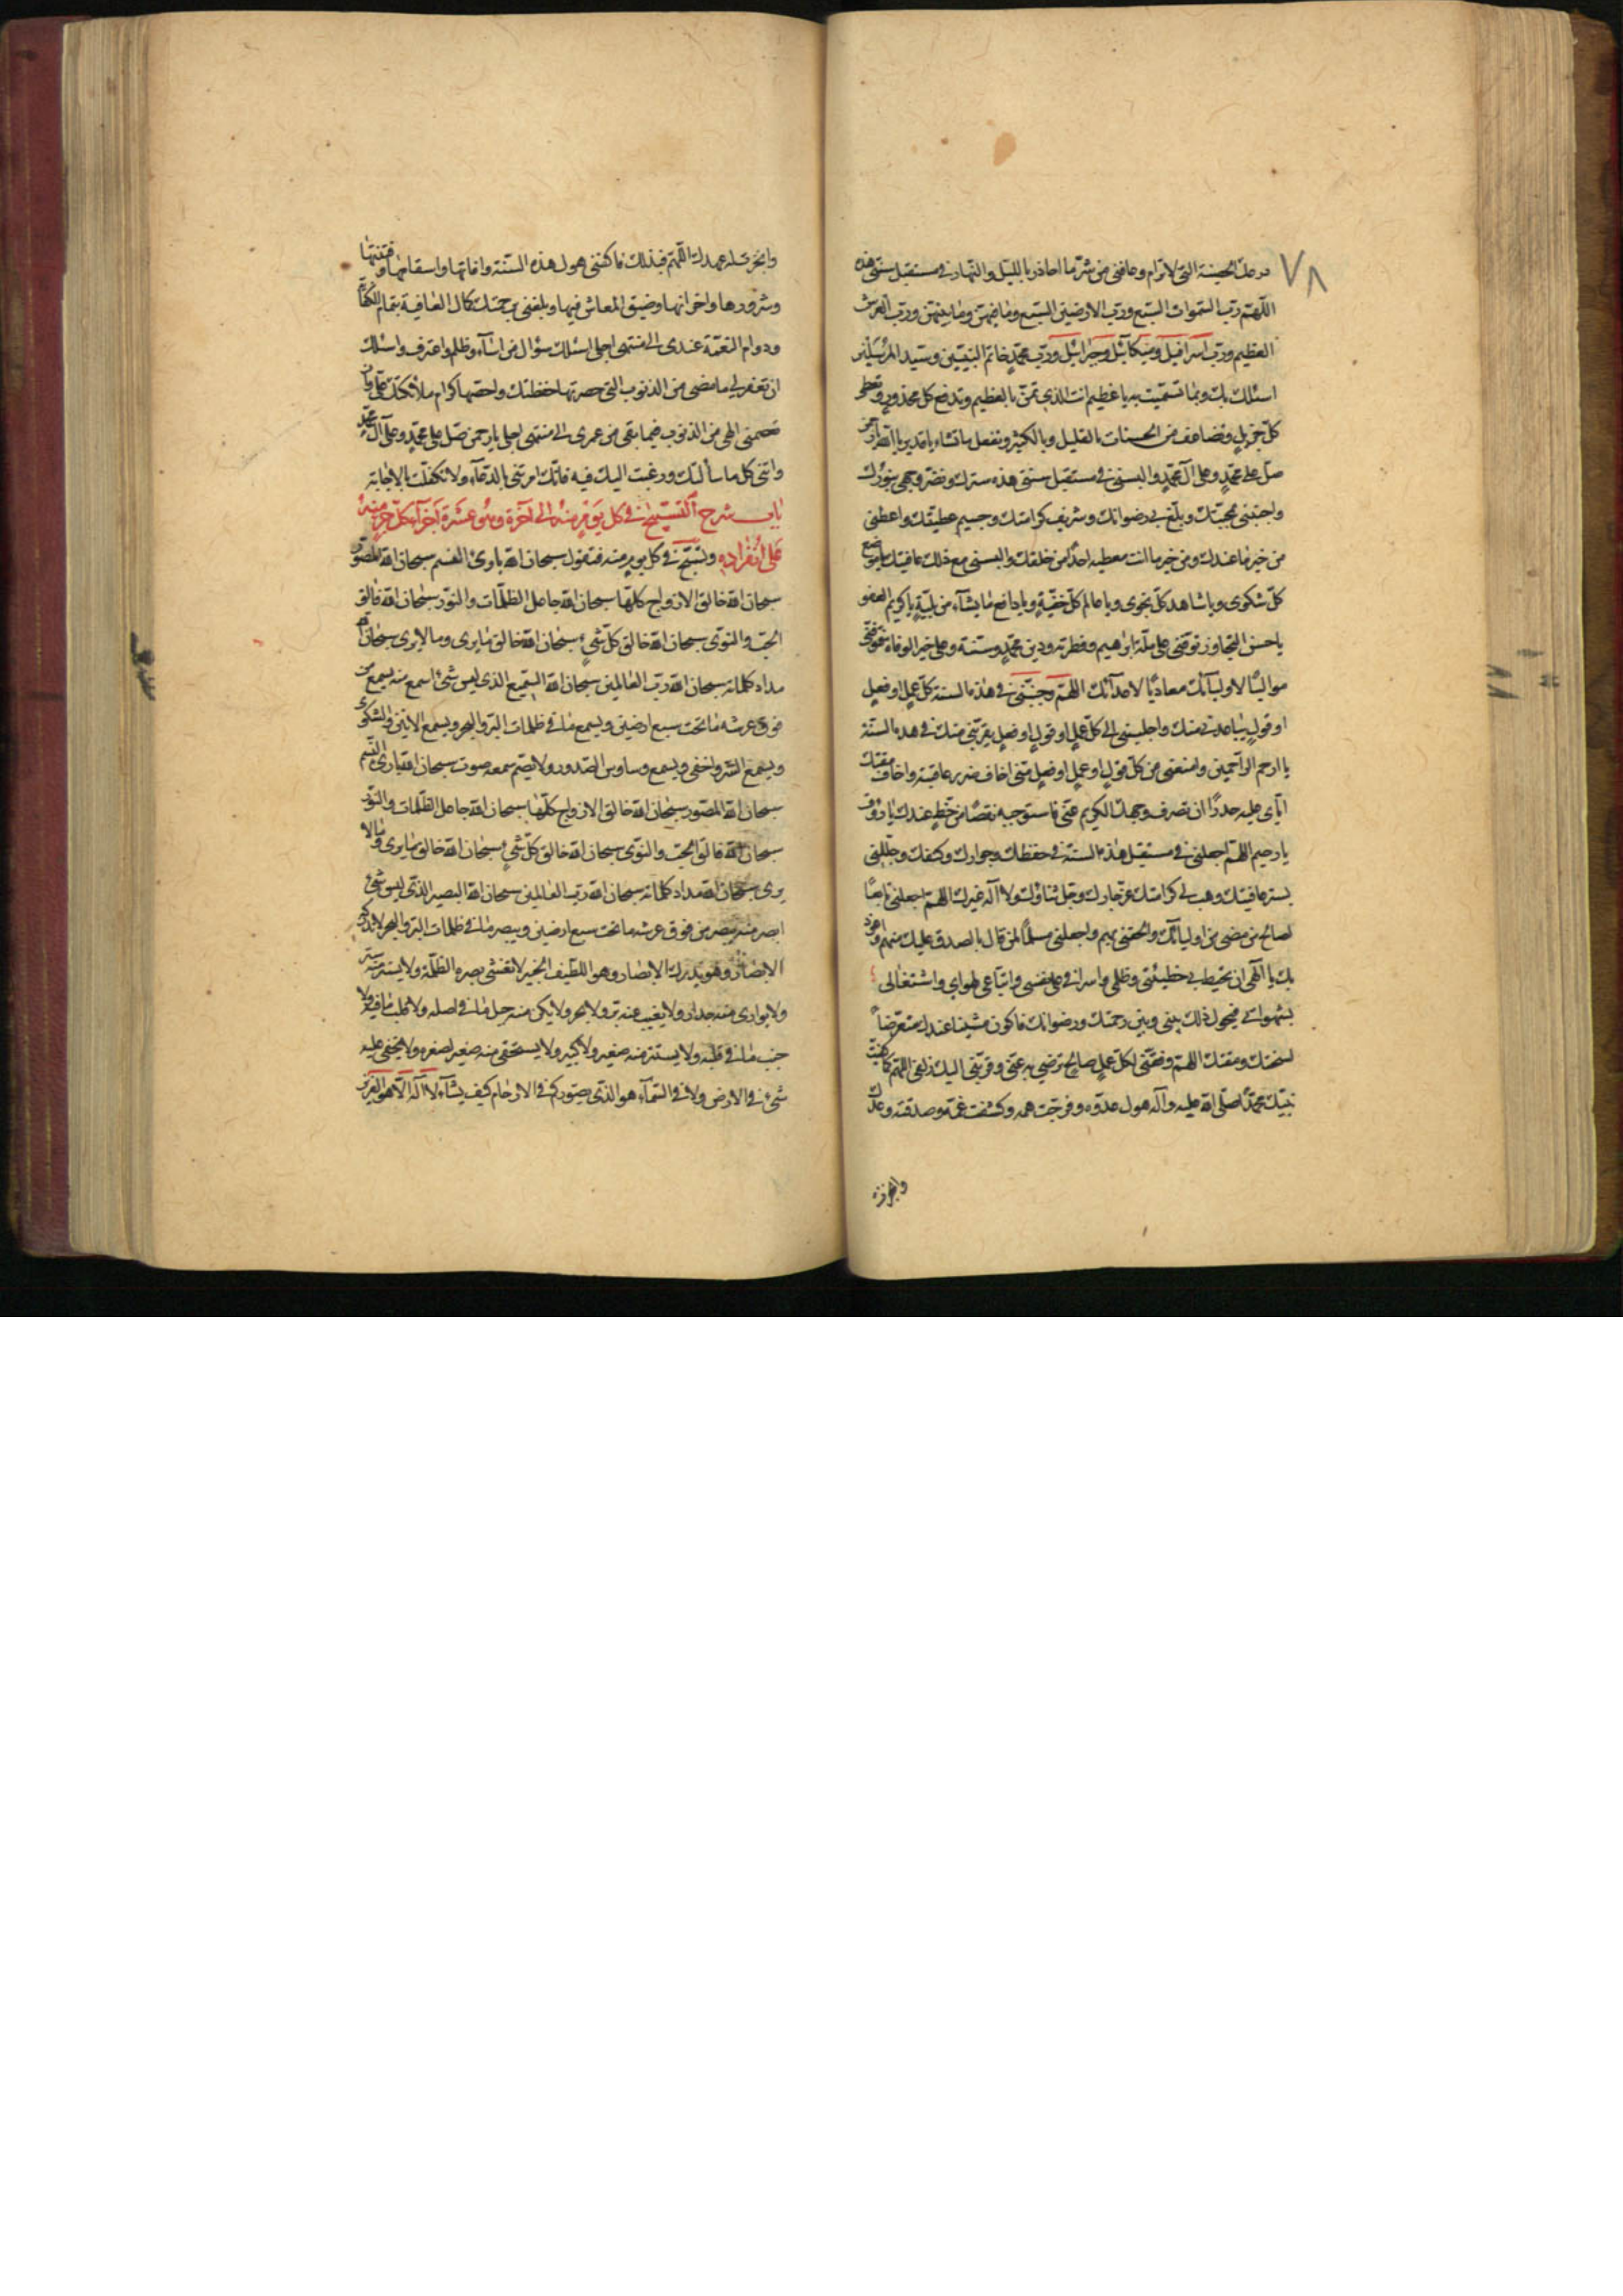 ٧٨
درعك الحصينة التي لا ترام وعافني من شرّ ما احاذر بالليل والنهار في مستقبل سنتي هذه
اللّهمّ ربّ السّموات السّبع وربّ الارضين السّبع وما فيهنّ وما بينهنّ وربّ العرش
العظيم وربّ اسرافيل وميكائيل وجبرائيل وربّ محمّدٍ خاتم النبيّين وسيّد المرسلين
اسئلك بك وبما تسمّيت به يا عظيم انت الذي تمنّ بالعظيم وتدفع كل محذورٍ وتعطي
كلّ جزيلٍ وتضاعف من الحسنات بالقليل وبالكثير وتفعل ما تشاء يا قدير يا الله يا رحمن
صلّ على محمّدٍ وعلى آل محمّدٍ والبسني في مستقبل سنتي هذه سترك ونضّر وجهي بنورك
واحبّني بمحبّتك وبلّغ بي رضوانك وشريف كرامتك وجسيم عطيّتك واعطني
من خير ما عندك ومن خير ما انت معطيه احدًا من خلقك والبسني مع ذلك عافيتك يا موضع
كلّ شكوى ويا شاهد كلّ نجوى ويا عالم كلّ خفيّةٍ ويا دافع ما يشآء من بليّةٍ يا كريم العفو
يا حسن التجاوز توفّني على ملّة ابراهيم وفطرته ودين محمّدٍ وسنّته وعلى خير الوفاة فتوفّني
مواليًا لاوليآئك معاديًا لاعدآئك اللّهمّ وجنّبني في هذه السنة كلّ عملٍ او فعلٍ
او قولٍ يباعدني منك واجلبني الى كلّ عملٍ او قولٍ او فعلٍ يقرّبني منك في هذه السّنة
يا ارحم الراحمين وامنعني من كلّ قولٍ او عملٍ او فعلٍ منّي اخاف ضرر عاقبته واخاف مقتك
ايّاي عليه حذرًا ان تصرف وجهك الكريم عنّي فاستوجب به نقصًا من حظٍّ عندك يا رؤف
يا رحيم اللهمّ اجعلني في مستقبل هذه السنة في حفظك وجوارك وكنفك وجلّلني
بستر عافيتك وهب لي كرامتك عزّ جارك وجلّ ثناؤك ولا اله غيرك اللهمّ اجعلني تابعًا
لصالح من مضى من اوليائك والحقني بهم واجعلني مسلّمًا لمن قال بالصدق عليك منهم واعوذ
بك يا الهي ان تحيط بي خطيئتي وظلمي واسرافي على نفسي واتّباعي لهواي واشتغالي
بشهواتي فيحول ذلك بيني وبين رحمتك ورضوانك فاكون منسيّا عندك متعرّضًا
لسخطك ومقتك اللهمّ وفّقني لكلّ عملٍ صالحٍ ترضى به عنّي وقرّبني اليك زلفى اللهمّ كما كفيت
نبيّك محمّدًا صلّى الله عليه وآله هول عدوّه وفرّجت همّه وكشفت غمّه وصدقته وعدك
وانجزت
وانجزت له عهدك اللّهمّ فبذلك فاكفني هول هذه السّنة وآفاتها واسقامها وفتنتها
وشرورها واحزانها وضيق المعاش فيها وبلّغني برحمتك كمال العافية بتمام
ودوام النعمة عندي الى منتهى اجلي اسئلك سؤال من اسآء وظلم واعترف واسئلك
ان تغفر لي ما مضى من الذنوب التي حصرتها حفظتك واحصتها كرام ملائكتك عليّ وان
تعصمني الهي من الذنوب فيما بقي من عمري الى منتهى اجلي يا رحمن صلّ على محمّدٍ وعلى آل محمّدٍ
واتني كل ما سألتك ورغبت اليك فيه فانّك امرتني بالدّعآء وتكفّلت بالاجابة
باب شرح التّسبيح في كلّ يومٍ منه الى آخره وهو عشرة اجزآء كلّ جزءٍ منه
على انفراده وتسبّح في كل يومٍ منه فتقول سبحان الله بارئ النسم سبحان الله المصوّر
سبحان الله خالق الازواج كلّها سبحان الله جاعل الظلمات والنور سبحان الله فالق
الحبّ والنوى سبحان الله خالق كلّ شيءٍ سبحان الله خالق ما يرى وما لا يرى سبحان الله
مداد كلماته سبحان الله ربّ العالمين سبحان الله السّميع الذي ليس شئ اسمع منه يسمع من
فوق عرشه ما تحت سبع ارضين ويسمع ما في ظلمات البرّ والبحر ويسمع الانين والشكوى
ويسمع السّرّ واخفى ويسمع وساوس الصّدور ولا يصمّ سمعه صوت سبحان الله بارئ النسم
سبحان الله المصوّر سبحان الله خالق الازواج كلّها سبحان الله جاعل الظلمات والنّور
سبحان الله فالق الحبّ والنوى سبحان الله خالق كلّ شيءٍ سبحان الله خالق ما يرى وما لا
يرى سبحان الله مداد كلماته سبحان الله ربّ العالمين سبحان الله البصير الذي ليس شئ
ابصر منه يبصر من فوق عرشه ما تحت سبع ارضين ويبصر ما في ظلمات البرّ والبحر لا تدركه
الابصار وهو يدرك الابصار وهو اللطيف الخبير لا تغشى بصره الظلمة ولا يستتر منه بستر
ولا يوارى منه جدار ولا يغيب عنه برّ ولا بحر ولا يكنّ منه جبل ما في اصله ولا قلب ما فيه ولا
جنب ما في قلبه ولا يستتر منه صغير ولا كبير ولا يستخفى منه صغير لصغره ولا يخفى عليه
شئ في الارض ولا في السّمآء هو الذي يصوّركم في الارحام كيف يشآء لا اله الّا هو العزيز